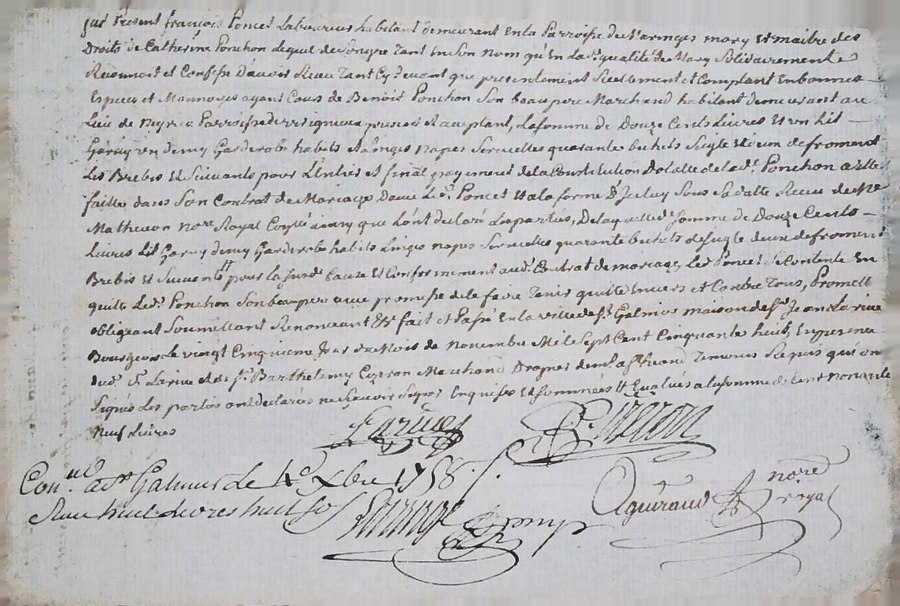 fut Present françois Poncet Laboureur habitant demeurant en la Parroisse de Varenges mary et maitre des
Droits de Catherine Ponchon lequel de Son gre tant en Son nom qu'En La d. qualité de Mary Solidairement
Reconnoit et Confesse D'avoir Receu Tant Cy devant que presentement Reellement et Comptant En bonnes
Especes et Monnoyes ayant Cours de Benoit Ponchon Son beaupere Marchand habitant demeurant au
Lieu de Parroisse de present et acceptant, La Somme de Douze Cents Livres et un Lit
Garny un demy Garderobe habits Linges Napes Serviettes quarante bichets Seigle et deux de froment
Les Brebis et Suivants pour L'Entier et final payement de la Constitution Dotalle de lad. Ponchon a Elle
faitte dans Son Contrat de Mariage Avec Led. Poncet et a la forme D'Iceluy Sous Sa datte Receu de Me
Matheuon Nore Royal que L'ont declaré Les parties, De laquelle d. Somme de Douze Cents
Livres Lit Garny demy Garderobe habits Linges napes Serviettes quarante bichets de Seigle deux de froment
Brebis et Suivants pour la Susd. Cause et Conformement aud. Contrat de mariage, Led. Poncet Se Contente En
quitte Led. Ponchon Son beaupere avec promesse de le faire Tenir quitte Envers et Contre Tous, Promett
obligeant Soumettant Renonceant &c fait et Passé En la Ville de St. Galmier maison de Sr. Jean Larive
Bourgeois le vingt Cinquieme Jour du Mois de novembre Mil Sept Cent Cinquante huit En presence
dud. Sr. Larive et de Sr. Barthelemy Marchand Drapier dem. a St. Temoins Requis qui ont
Signés Les parties ont declarés ne Scavoir Signer Enquises et Sommées et Evalués a la Somme de Cent nonante
Neuf Livres
Larive
Con.lé a St Galmier le 4e Xbre 1758.
Receu huit Livres huit Sols
Aguiraud nore royal